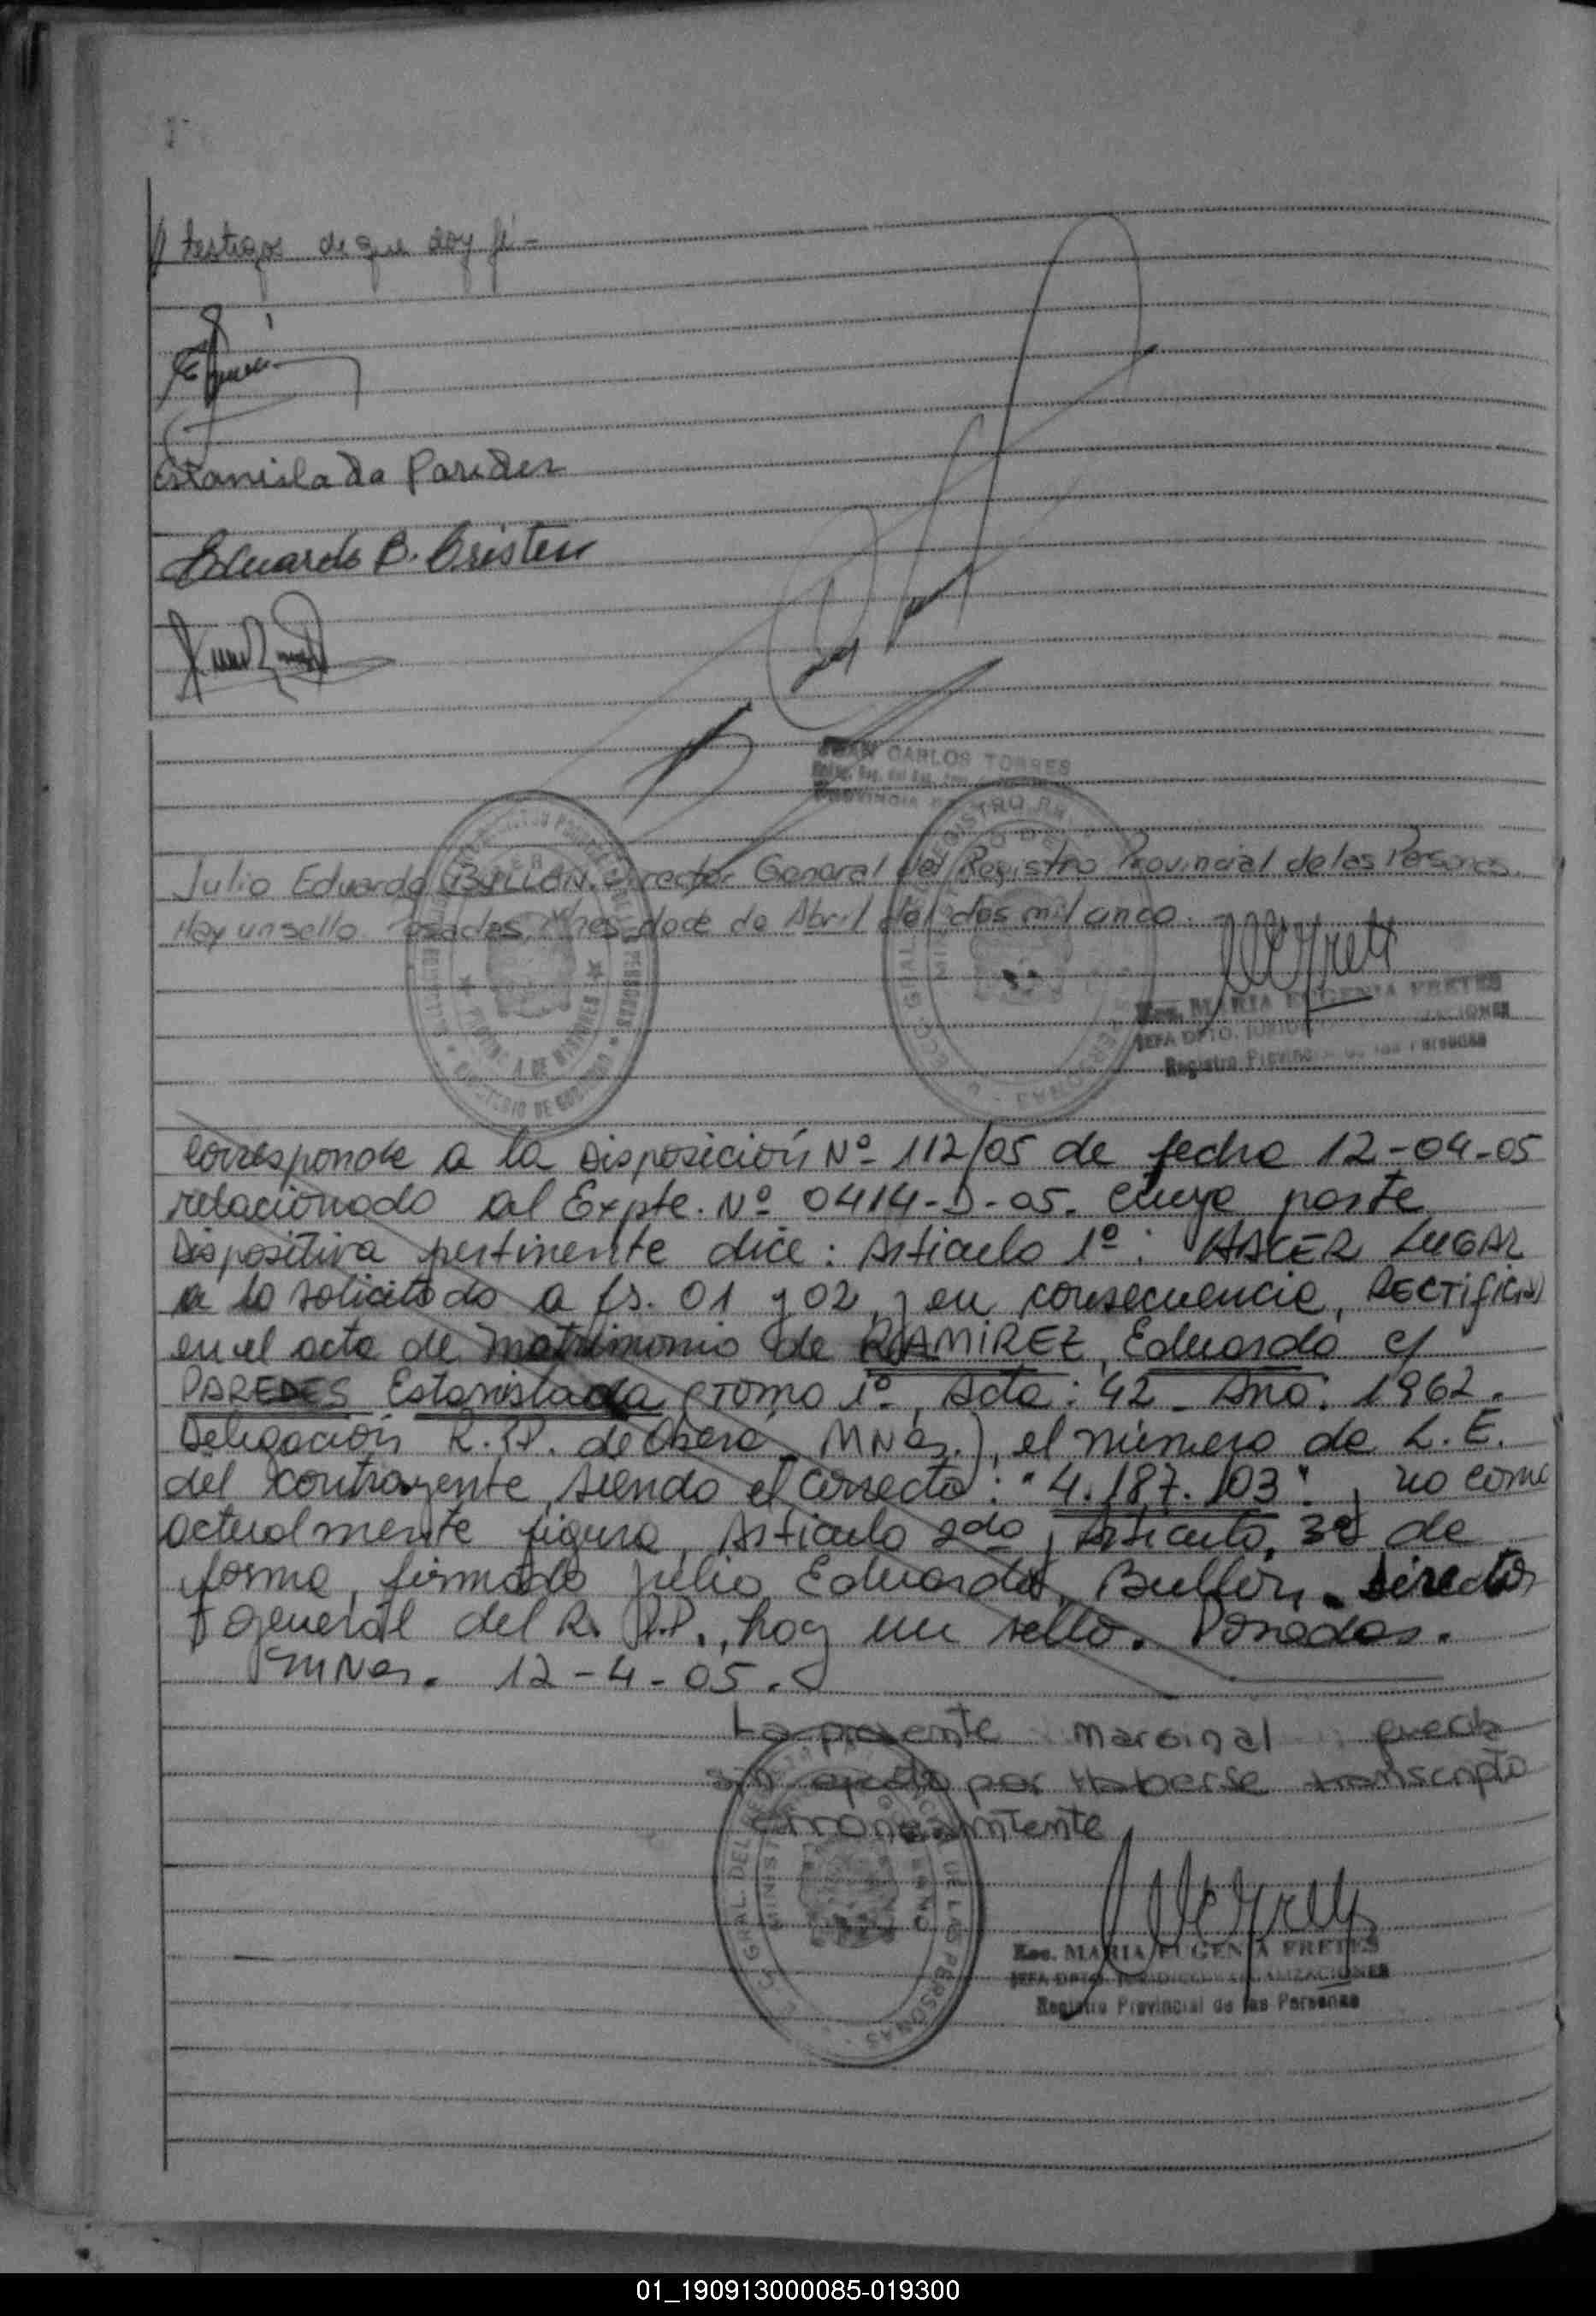 // testigos de que doy fé -
Estanislada Paredes
Eduardo B. Cristen
JUAN CARLOS TORRES
PROVINCIA
Julio Eduardo BULLON. Director General del Registro Provincial de las Personas.
Hay un sello. Posadas, Mnes, doce de Abril del dos mil cinco.
Esc. MARIA EUGENIA FRETES
JEFA DPTO.
Registro Provincial de las Personas
Corresponde a la Disposición Nº 112/05 de fecha 12-04-05
relacionado al Expte. Nº 0414-D-05. Cuya parte
Dispositiva pertinente dice: Articulo 1º: HACER LUGAR
a lo solicitado a fs. 01 y 02, y en consecuencia, RECTIFICAR
en el acta de matrimonio de RAMIREZ, Eduardo c/
PAREDES Estanislada (Tomo 1º, Acta: 42 - Año: 1962.
Delegación R.P.P. de Oberá, MNes.), el número de L.E.
del contrayente, siendo el correcto: "4.187.103", no como
actualmente figura, Articulo 2do, Articulo, 3º de
forma, firmado Julio Eduardo, Bullon, Director
general del R.P.P., hay un sello. Posadas.
MNes. 12-4-05.
La presente marginal queda
sin efecto por Haberse transcripto
erroneamente
Esc. MARIA EUGENIA FRETES
JEFA DPTO. LEGALIZACIONES
Registro Provincial de las Personas
01_190913000085-019300